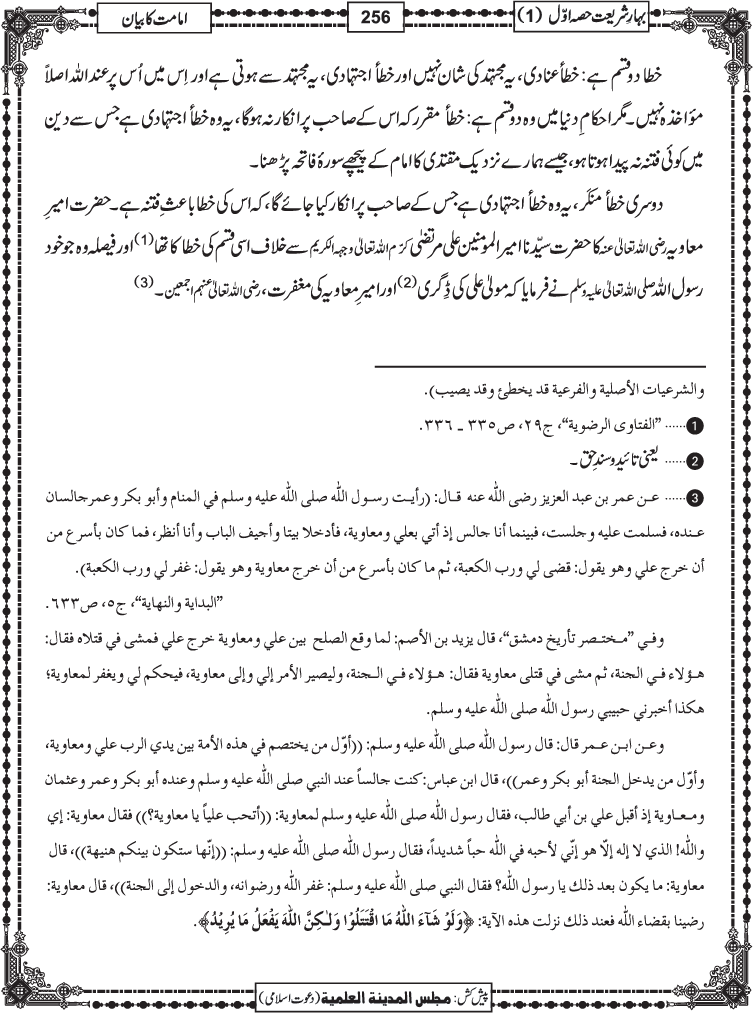 بہارِ شریعت حصہ اوّل (1)
256
امامت کا بیان
خطا دو قسم ہے: خطأ عنادی، یہ مجتہد کی شان نہیں اور خطأ اجتہادی، یہ مجتہد سے ہوتی ہے اور اِس میں اُس پر عند اللہ اصلاً
مؤاخذہ نہیں۔ مگر احکامِ دنیا میں وہ دو قسم ہے: خطأ مقرر کہ اس کے صاحب پر انکار نہ ہوگا، یہ وہ خطأ اجتہادی ہے جس سے دین
میں کوئی فتنہ نہ پیدا ہوتا ہو، جیسے ہمارے نزدیک مقتدی کا امام کے پیچھے سورۂ فاتحہ پڑھنا۔
دوسری خطأ منکَر، یہ وہ خطأ اجتہادی ہے جس کے صاحب پر انکار کیا جائے گا، کہ اس کی خطا باعثِ فتنہ ہے۔ حضرت امیرِ
معاویہ رضی اللہ تعالیٰ عنہ کا حضرت سیّدنا امیر المومنین علی مرتضیٰ کرّم اللہ تعالیٰ وجہہ الکریم سے خلاف اسی قسم کی خطا کا تھا (1) اور فیصلہ وہ جو خود
رسول اللہ صلی اللہ تعالیٰ علیہ وسلم نے فرمایا کہ مولیٰ علی کی ڈِگری (2) اور امیرِ معاویہ کی مغفرت، رضی اللہ تعالیٰ عنہم اجمعین۔ (3)
والشرعيات الأصلية والفرعية قد يخطئ وقد يصيب).
1 ...... ”الفتاوی الرضوية“، ج٢٩، ص٣٣٥ ـ ٣٣٦.
2 ...... یعنی تائید و سندِ حق۔
3 ...... عن عمر بن عبد العزيز رضى الله عنه قال: (رأيت رسول الله صلى الله عليه وسلم في المنام وأبو بكر وعمر جالسان
عنده، فسلمت عليه وجلست، فبينما أنا جالس إذ أتي بعلي ومعاوية، فأدخلا بيتا وأجيف الباب وأنا أنظر، فما كان بأسرع من
أن خرج علي وهو يقول: قضى لي ورب الكعبة، ثم ما كان بأسرع من أن خرج معاوية وهو يقول: غفر لي ورب الكعبة).
”البداية والنهاية“، ج٥، ص٦٣٣.
وفي ”مختصر تأريخ دمشق“، قال يزيد بن الأصم: لما وقع الصلح بين علي ومعاوية خرج علي فمشى في قتلاه فقال:
هؤلاء في الجنة، ثم مشى في قتلى معاوية فقال: هؤلاء في الجنة، وليصير الأمر إلي وإلى معاوية، فيحكم لي ويغفر لمعاوية؛
هكذا أخبرني حبيبي رسول الله صلى الله عليه وسلم.
وعن ابن عمر قال: قال رسول الله صلى الله عليه وسلم: ((أوّل من يختصم في هذه الأمة بين يدي الرب علي ومعاوية،
وأوّل من يدخل الجنة أبو بكر وعمر))، قال ابن عباس: كنت جالساً عند النبي صلى الله عليه وسلم وعنده أبو بكر وعمر وعثمان
ومعاوية إذ أقبل علي بن أبي طالب، فقال رسول الله صلى الله عليه وسلم لمعاوية: ((أتحب علياً يا معاوية؟)) فقال معاوية: إي
والله! الذي لا إله إلّا هو إنّي لأحبه في الله حباً شديداً، فقال رسول الله صلى الله عليه وسلم: ((إنّها ستكون بينكم هنيهة))، قال
معاوية: ما يكون بعد ذلك يا رسول الله؟ فقال النبي صلى الله عليه وسلم: غفر الله ورضوانه، والدخول إلى الجنة))، قال معاوية:
رضينا بقضاء الله فعند ذلك نزلت هذه الآية: ﴿وَلَوْ شَآءَ اللّٰهُ مَا اقْتَتَلُوْا وَلٰـكِنَّ اللّٰهَ يَفْعَلُ مَا يُرِيْدُ﴾.
پیش کش: مجلس المدینة العلمیة (دعوتِ اسلامی)